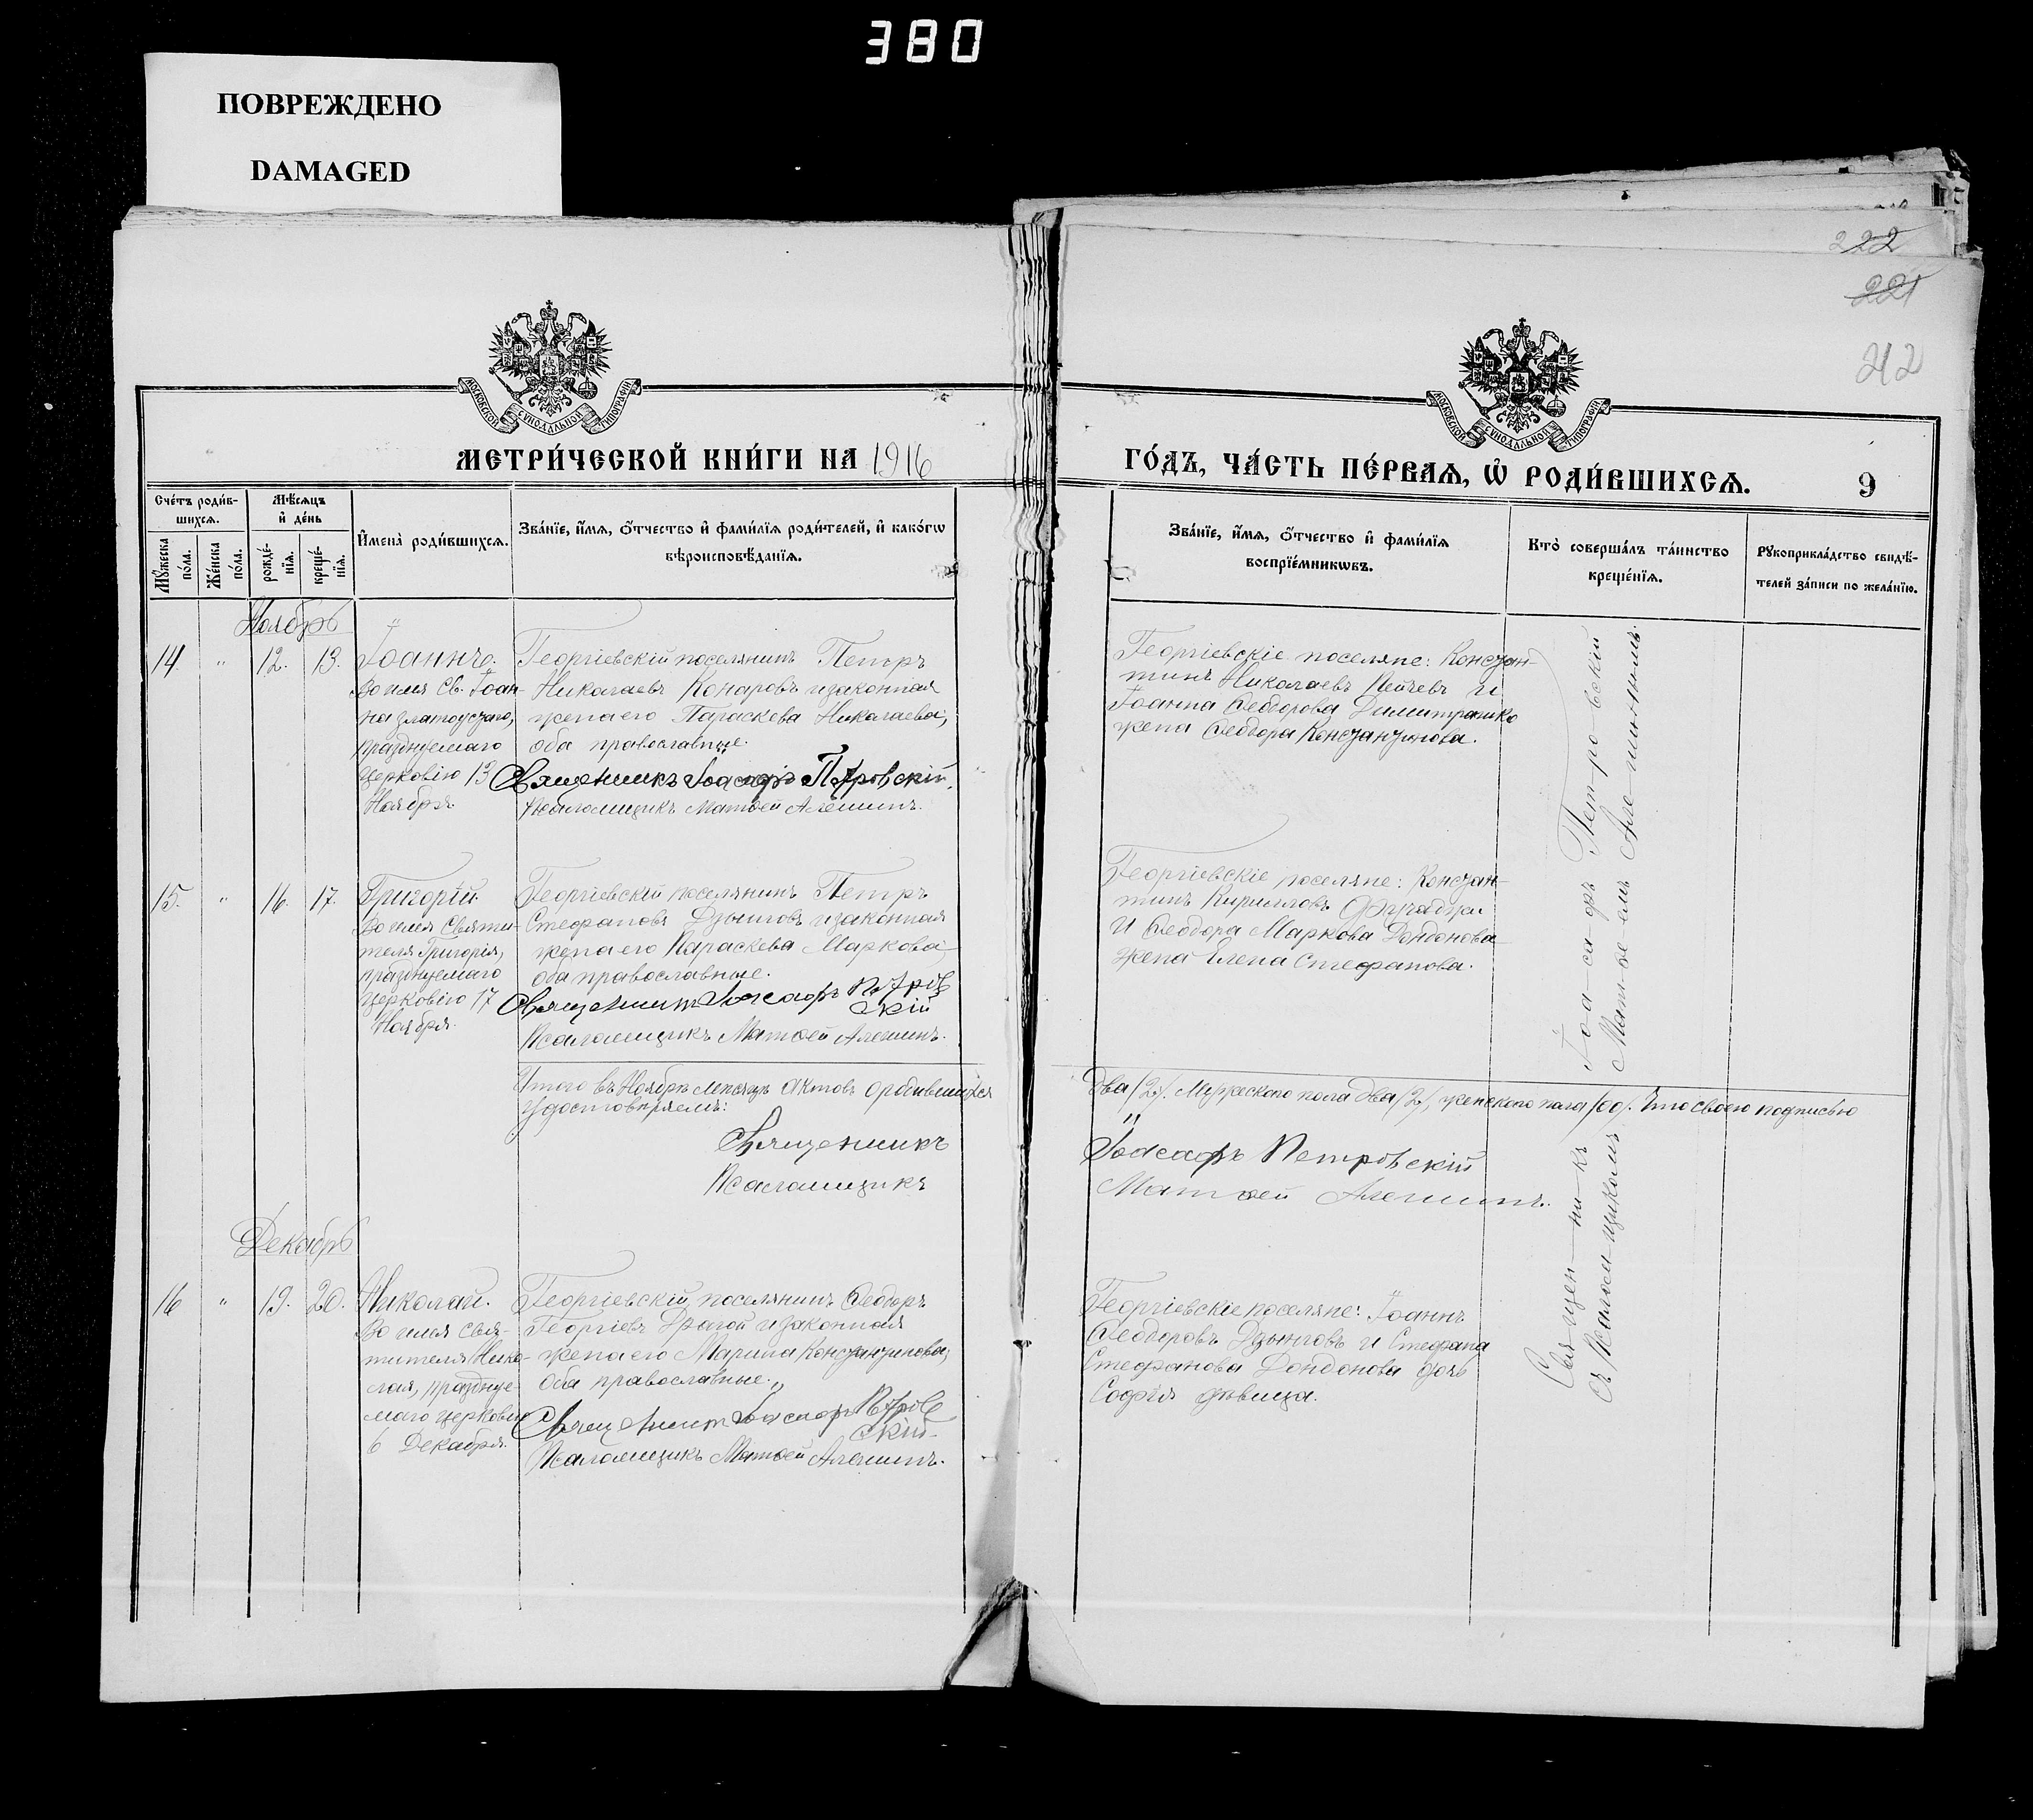 380
ПОВРЕЖДЕНО
DAMAGED
222
221
212
МОСКОВСКОЙ СѴНОДАЛЬНОЙ ТИПОГРАФІИ
МОСКОВСКОЙ СѴНОДАЛЬНОЙ ТИПОГРАФІИ
МЕТРИ́ЧЕСКОЙ КНИ́ГИ НА 1916
ГО́ДЪ, ЧА́СТЬ ПЕ́РВАЯ, Ѡ҆ РОДИ́ВШИХСѦ.
9
Сче́тъ роди́в-
шихсѧ.
Мꙋ́жеска по́ла.
Же́нска по́ла.
Мѣ́сѧцъ
и҆ де́нь
рожде́-
нїѧ.
креще́-
нїѧ.
И҆мена̀ роди́вшихсѧ.
Зва́нїе, и҆́мѧ, ѻ҆́тчество и҆ фами́лїѧ роди́телей, и҆ како́гѡ
вѣроисповѣ́данїѧ.
Зва́нїе, и҆́мѧ, ѻ҆́тчество и҆ фами́лїѧ
воспрїе́мникѡвъ.
Кто̀ соверша́лъ та́инство
креще́нїѧ.
Рꙋкоприкла́дство свидѣ́-
телей за́писи по жела́нїю.
Ноябрь
14. " 12. 13.
Іоаннъ.
Во имя Св. Іоан-
на Златоустаго,
празднуемаго
церковію 13
Ноября
Георгіевскій поселянинъ Петръ
Николаевъ Конаровъ и законная
жена его Параскева Николаева,
оба православные.
Священникъ Іоасафъ Петровскій.
Псаломщикъ Матѳей Алешинъ.
Георгіевскіе поселяне: Констан-
тинъ Николаевъ Пейчевъ и
Іоанна Ѳеодорова Димитрашко
жена Ѳеодора Константинова.
15. " 16. 17.
Григорій.
Во имя Святи-
теля Григорія,
празднуемаго
церковію 17
Ноября.
Георгіевскій поселянинъ Петръ
Стефановъ Дзынговъ и законная
жена его Параскева Маркова
оба православные.
Священникъ Іоасафъ Петров
скій
Псаломщикъ Матѳей Алешинъ.
Георгіевскіе поселяне: Констан-
тинъ Кирилловъ
и Ѳеодора Маркова Дондонова
жена Елена Стефанова.
Итого въ Ноябрѣ мѣсяцѣ актовъ о родившихся
удостовѣряемъ:
два /2/. Мужескаго пола два /2/, женскаго пола /00/. Что своею подписью
Священникъ
Іоасафъ Петровскій
Псаломщикъ
Матѳей Алешинъ.
Декабрь
16 " 19. 20.
Николай.
Во имя Свя-
тителя Нико-
лая, празднуе-
маго церковію
6 Декабря.
Георгіевскій поселянинъ Ѳеодоръ
Георгіевъ и законная
жена его Марина Константинова,
оба православные.
Священникъ Іоасафъ Петров
скій.
Псаломщикъ Матѳей Алешинъ.
Георгіевскіе поселяне: Іоаннъ
Ѳеодоровъ Дзынговъ и Стефана
Стефанова Дондонова дочь
Софія дѣвица.
Свя-щен-ни-къ Іоа-са-фъ Пет-ро-вскій
съ Псалом-щикомъ Мат-ѳе-емъ Але-шинымъ.